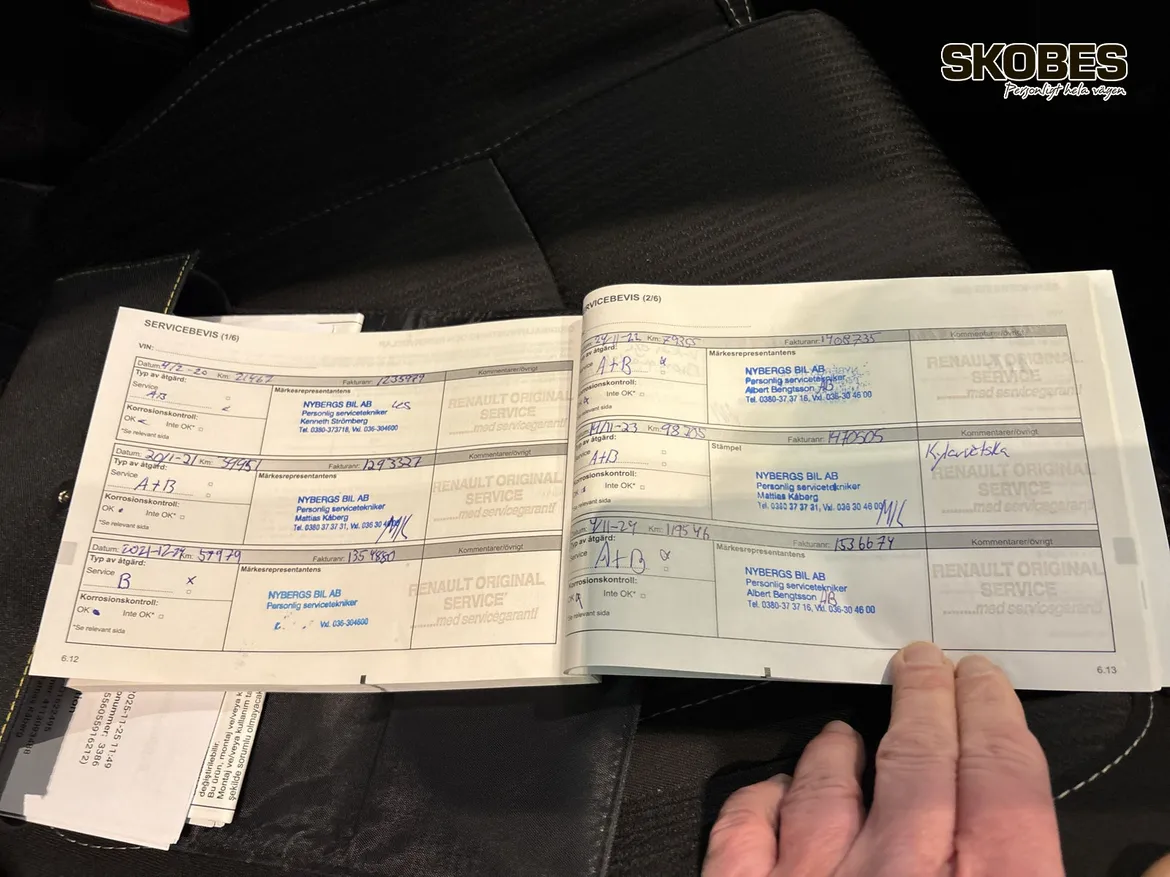 SKOBES
Personligt hela vägen
SERVICEBEVIS (1/6)
VIN:
Datum: 4/12-20 Km: 21467 Fakturanr: 1235979 Kommentarer/övrigt
Typ av åtgärd:
Service
AB
Märkesrepresentantens
NYBERGS BIL AB
Personlig servicetekniker
Kenneth Strömberg
Tel. 0380-373718, Vxl. 036-304600
Korrosionskontroll:
OK Inte OK*
*Se relevant sida
RENAULT ORIGINAL
SERVICE
........med servicegaranti!
Datum: 20/1-21 Km: 39951 Fakturanr: 1293527 Kommentarer/övrigt
Typ av åtgärd:
Service
A+B
Märkesrepresentantens
NYBERGS BIL AB
Personlig servicetekniker
Mattias Kåberg
Tel. 0380 37 37 31, Vxl. 036 30 4600
Korrosionskontroll:
OK Inte OK*
*Se relevant sida
RENAULT ORIGINAL
SERVICE
........med servicegaranti!
Datum: 2021-12-29 Km: 57979 Fakturanr: 1354850 Kommentarer/övrigt
Typ av åtgärd:
Service
B x
Märkesrepresentantens
NYBERGS BIL AB
Personlig servicetekniker
Vxl. 036-304600
Korrosionskontroll:
OK Inte OK*
*Se relevant sida
RENAULT ORIGINAL
SERVICE
........med servicegaranti!
6.12
RVICEBEVIS (2/6)
24/11-22 Km: 79355 Fakturanr: 1408735 Kommentarer/övrigt
av åtgärd:
A+B
Märkesrepresentantens
NYBERGS BIL AB
Personlig servicetekniker
Albert Bengtsson AB
Tel. 0380-37 37 16, Vxl. 036-30 46 00
Korrosionskontroll:
Inte OK*
relevant sida
RENAULT ORIGINAL
SERVICE
........med servicegaranti!
14/11-23 Km: 98205 Fakturanr: 1470505 Kommentarer/övrigt
A+B
Stämpel
NYBERGS BIL AB
Personlig servicetekniker
Mattias Kåberg
Tel. 0380 37 37 31, Vxl. 036 30 4600
Kylarvätska
Korrosionskontroll:
Inte OK*
relevant sida
RENAULT ORIGINAL
SERVICE
........med servicegaranti!
4/11-24 Km: 119546 Fakturanr: 1536674 Kommentarer/övrigt
av åtgärd:
A+B
Märkesrepresentantens
NYBERGS BIL AB
Personlig servicetekniker
Albert Bengtsson AB
Tel. 0380-37 37 16, Vxl. 036-30 46 00
Korrosionskontroll:
Inte OK*
relevant sida
RENAULT ORIGINAL
SERVICE
........med servicegaranti!
6.13
2025-11-25 11:49
onummer: 3386
556055916212)
değiştirilebilir.
Bu ürün, montaj ve/veya
Montaj ve/veya kullanım ta
şekilde sorumlu olmayacak